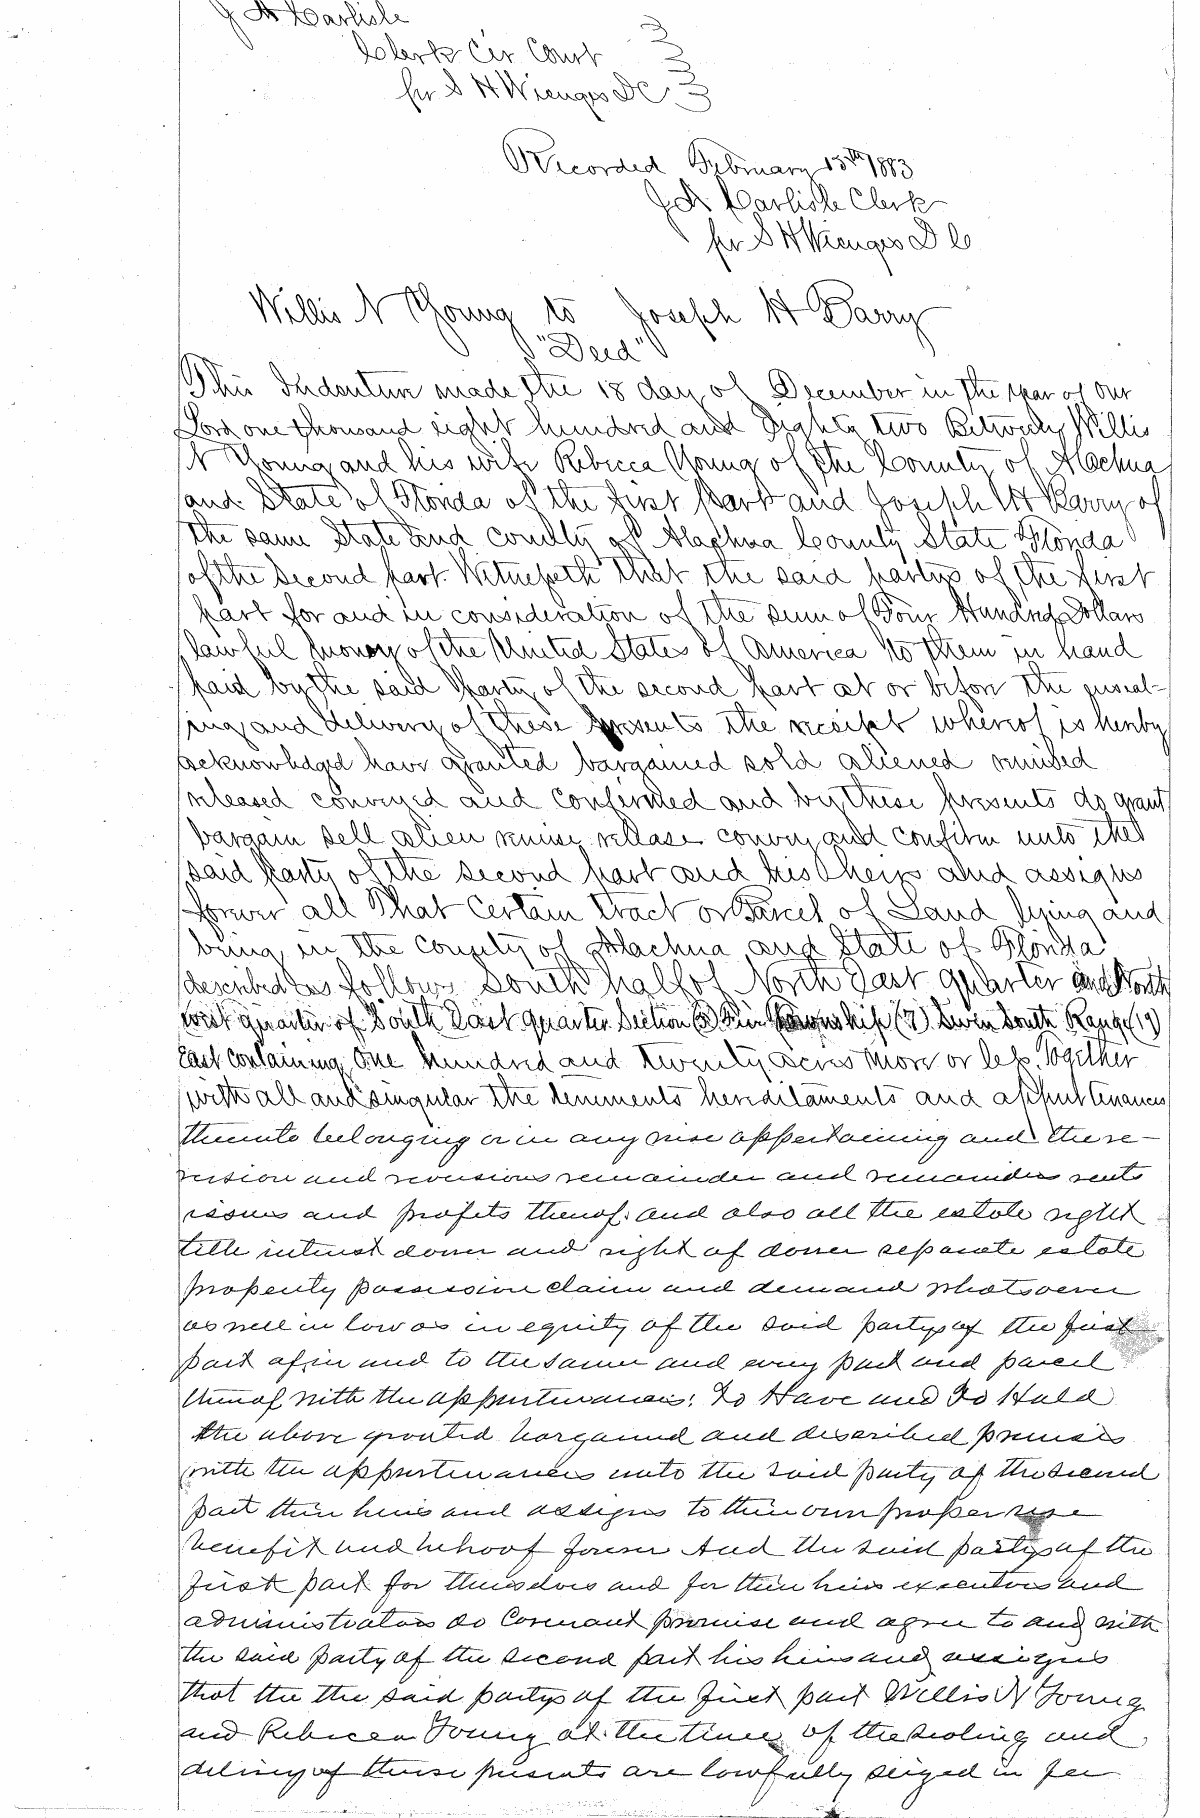 J A Carlisle
Clerk Cir Court
per S H Wienges D C
Recorded February 15th 1883
J A Carlisle Clerk
per S H Wienges D C
Willis N Young to Joseph H Barry
"Deed"
This Indenture made the 18 day of December in the year of our
Lord one thousand eight hundred and Eighty two Between Willis
N Young and his wife Rebecca Young of the County of Alachua
and State of Florida of the first part and Joseph H Barry of
the same State and county of Alachua County State Florida
of the second part. Witnesseth that the said partys of the first
part for and in consideration of the sum of Four Hundred Dollars
lawful money of the United States of America to them in hand
paid by the said party of the second part at or before the enseal-
ing and delivery of these presents the receipt whereof is hereby
acknowledged have granted bargained sold aliened remised
released conveyed and confirmed and by these presents do grant
bargain sell alien remise release convey and confirm unto the
said party of the second part and his heirs and assigns
forever all That Certain tract or Parcel of Land lying and
being in the county of Alachua and State of Florida
described as follows South half of North East quarter and North
west quarter of South East quarter Section (5) Five Township (7) Seven South Range (19)
East containing One hundred and twenty acres more or less. Together
with all and singular the tenements hereditaments and appurtenances
thereunto belonging or in any wise appertaining and the re-
version and reversions remainder and remainders rents
issues and profits thereof. and also all the estate right
title interest dower and right of dower separate estate
property possession claim and demand whatsoever
as well in law as in equity of the said partys of the first
part of, in and to the same and every part and parcel
thereof with the appurtenances: To Have and To Hold
the above granted bargained and described premises
with the appurtenances unto the said party of the second
part their heirs and assigns to their own proper use
benefit and behoof forever And the said partys of the
first part for themselves and for their heirs executors and
administrators do Covenant promise and agree to and with
the said party of the second part his heirs and assigns
that the the said partys of the first part Willis N Young
and Rebecca Young at the time of the sealing and
delivery of these presents are lawfully seized in fee